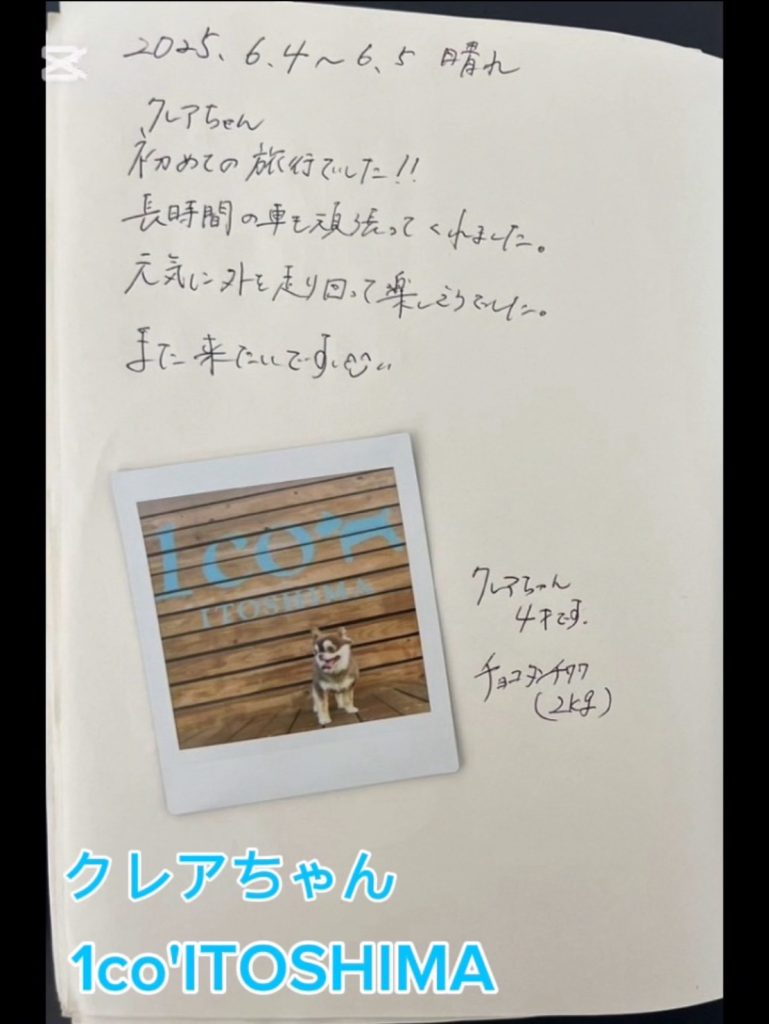 2025.6.4～6.5 晴れ
クレアちゃん
初めての旅行でした!!
長時間の車も頑張ってくれました。
元気に外を走り回って楽しそうでした。
また来たいです。
1co'
ITOSHIMA
クレアちゃん
4才です.
チョコタンチワワ
(2kg)
クレアちゃん
1co'ITOSHIMA